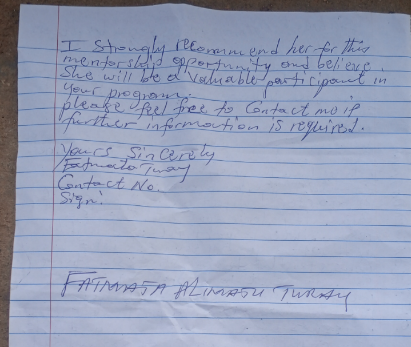 I strongly recommend her for this
mentorship opportunity and believe
She will be a valuable participant in
your program.
please feel free to Contact me if
further information is required.
Yours Sincerely
Fatmata Turay
Contact No.
Sign:
FATMATA ALIMATU TURAY